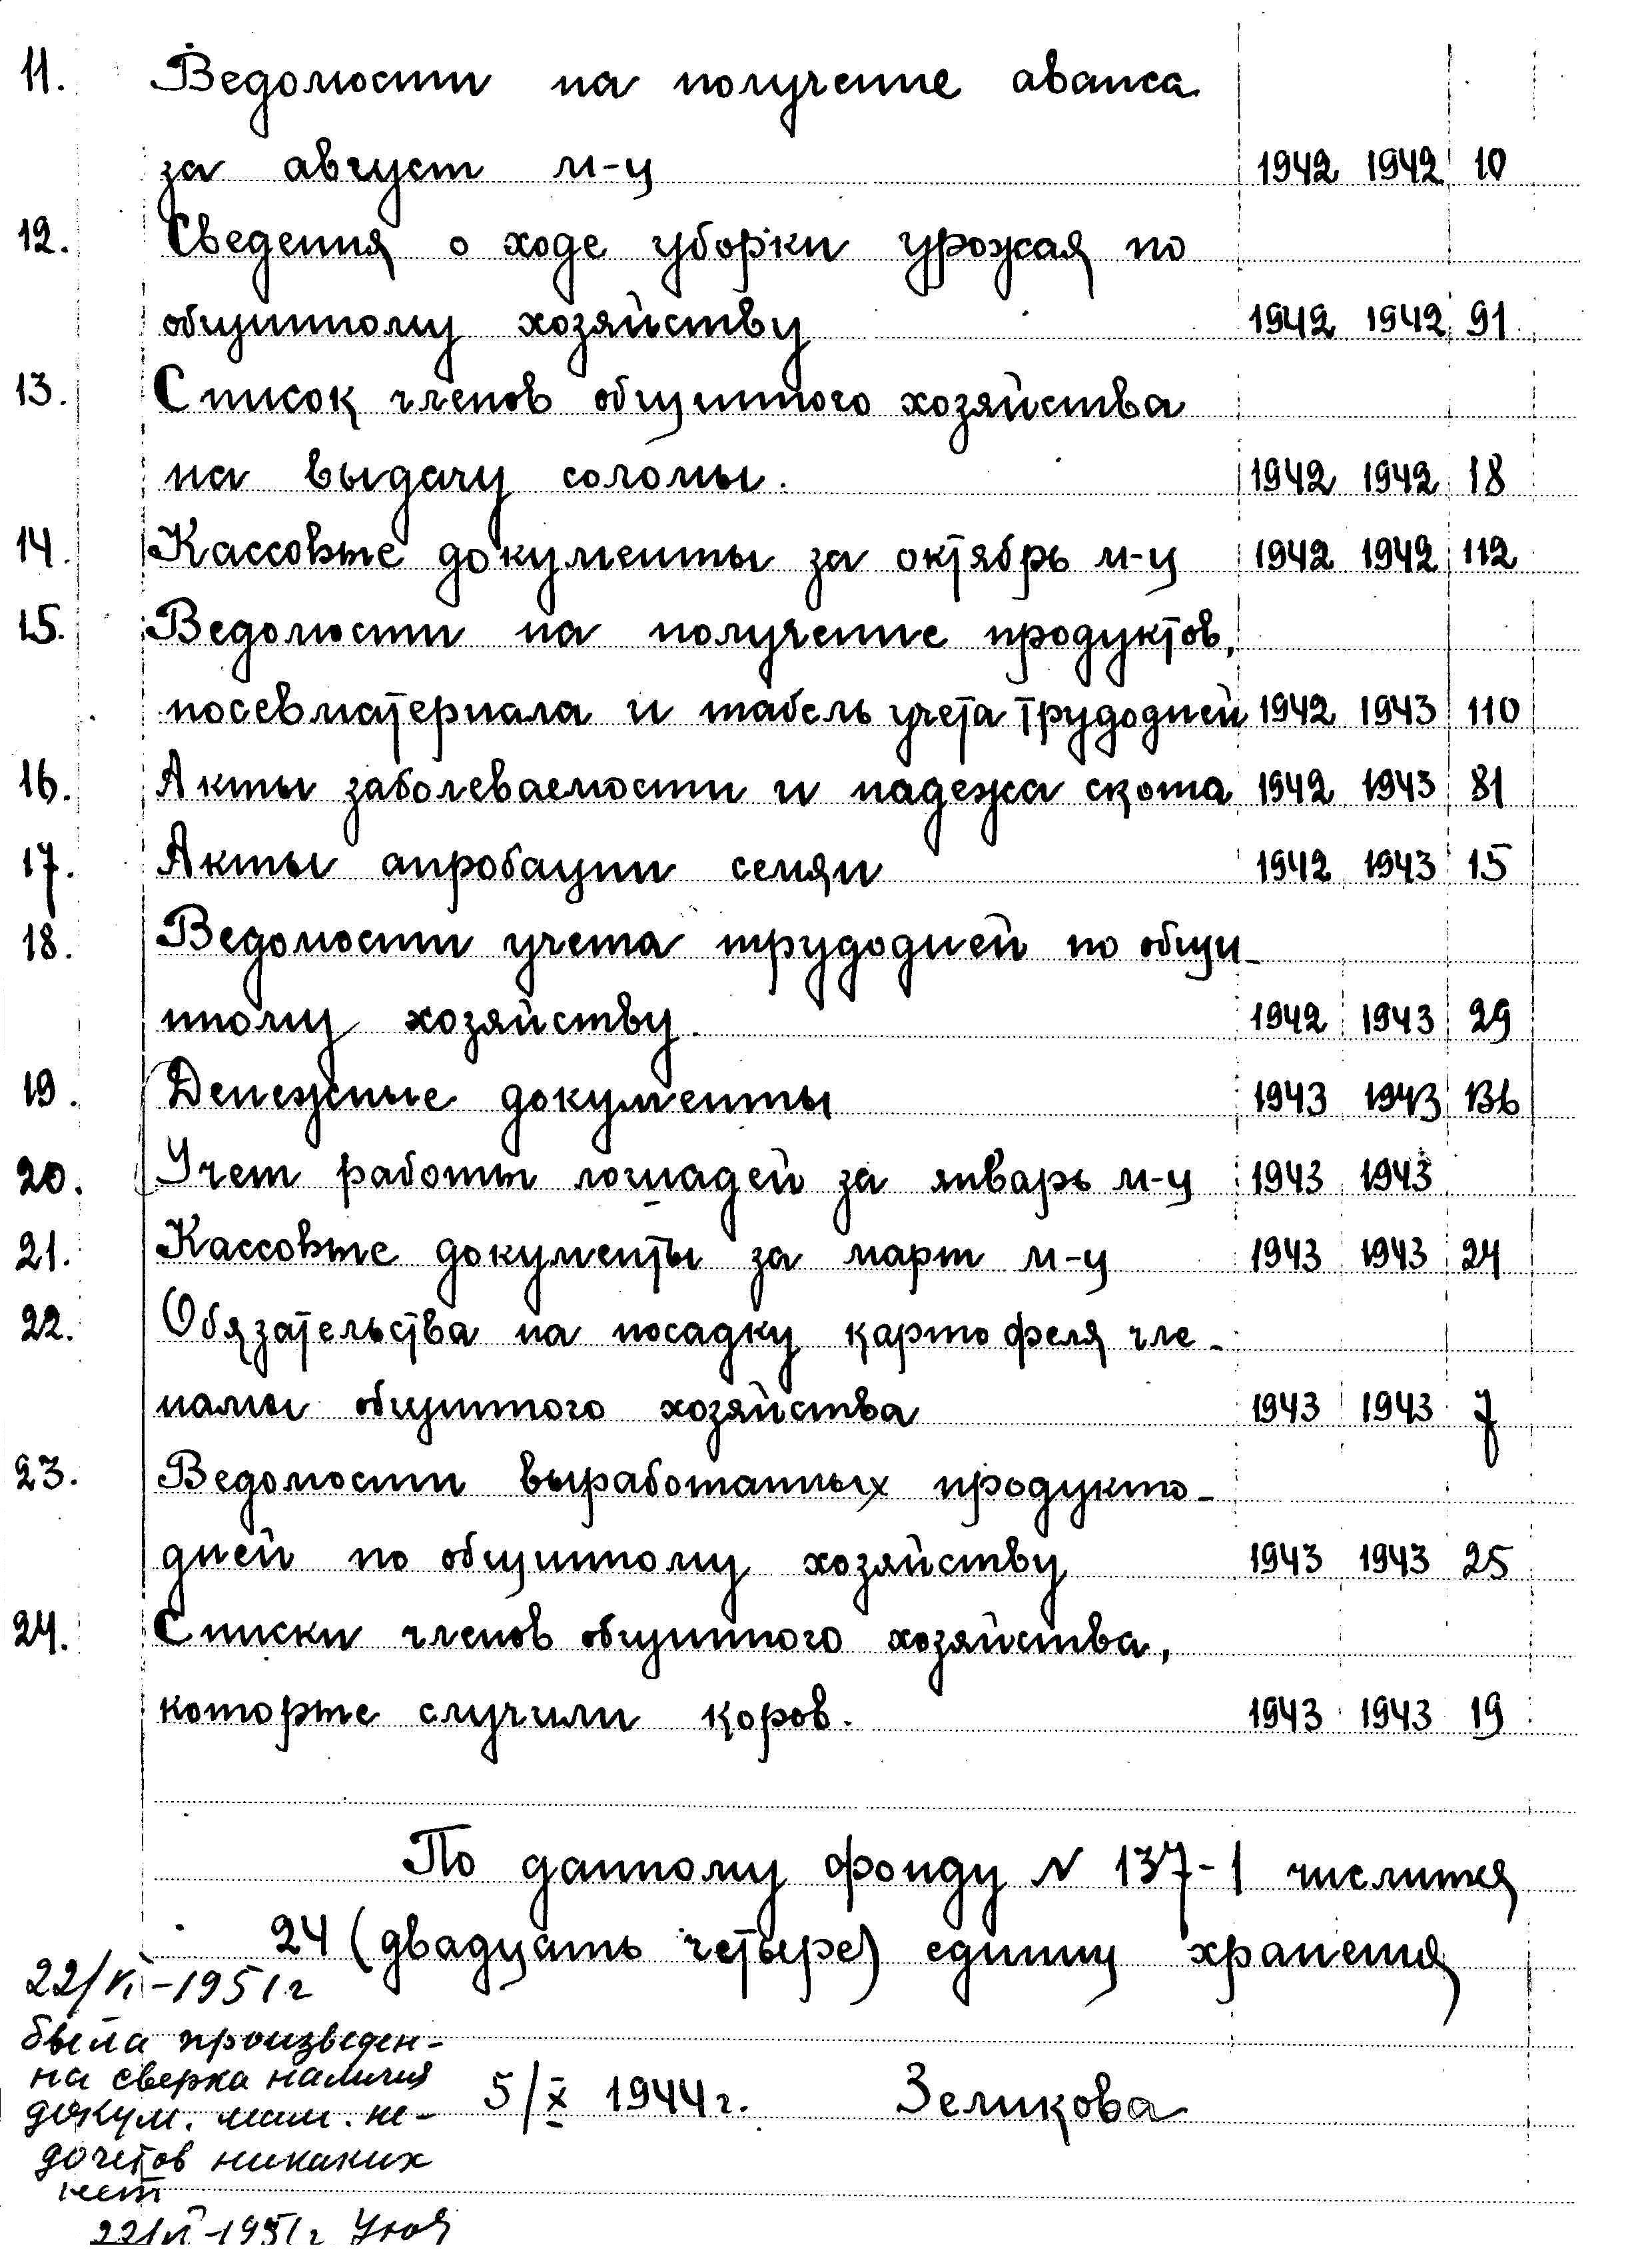 11. Ведомости на получение аванса
за август м-ц 1942 1942 10
12. Сведения о ходе уборки урожая по
общинному хозяйству 1942 1942 91
13. Список членов общинного хозяйства
на выдачу соломы. 1942 1942 18
14. Кассовые документы за октябрь м-ц 1942 1942 112
15. Ведомости на получение продуктов,
посевматериала и табель учета трудодней 1942 1943 110
16. Акты заболеваемости и падежа скота 1942 1943 81
17. Акты апробации семян 1942 1943 15
18. Ведомости учета трудодней по общи-
нному хозяйству. 1942 1943 29
19. Денежные документы 1943 1943 136
20. Учет работы лошадей за январь м-ц 1943 1943
21. Кассовые документы за март м-ц 1943 1943 24
22. Обязательства на посадку картофеля чле-
нами общинного хозяйства 1943 1943 7
23. Ведомости выработанных продукто-
дней по общинному хозяйству 1943 1943 25
24. Списки членов общинного хозяйства,
которые случили коров. 1943 1943 19
По данному фонду N 137-1 числится
24 (двадцать четыре) единиц хранения
22/VI-1951г
была произведен-
на сверка наличия
докум. мат. не-
дочетов никаких
нет
5/X 1944г. Зеликова
22/VI-1951г